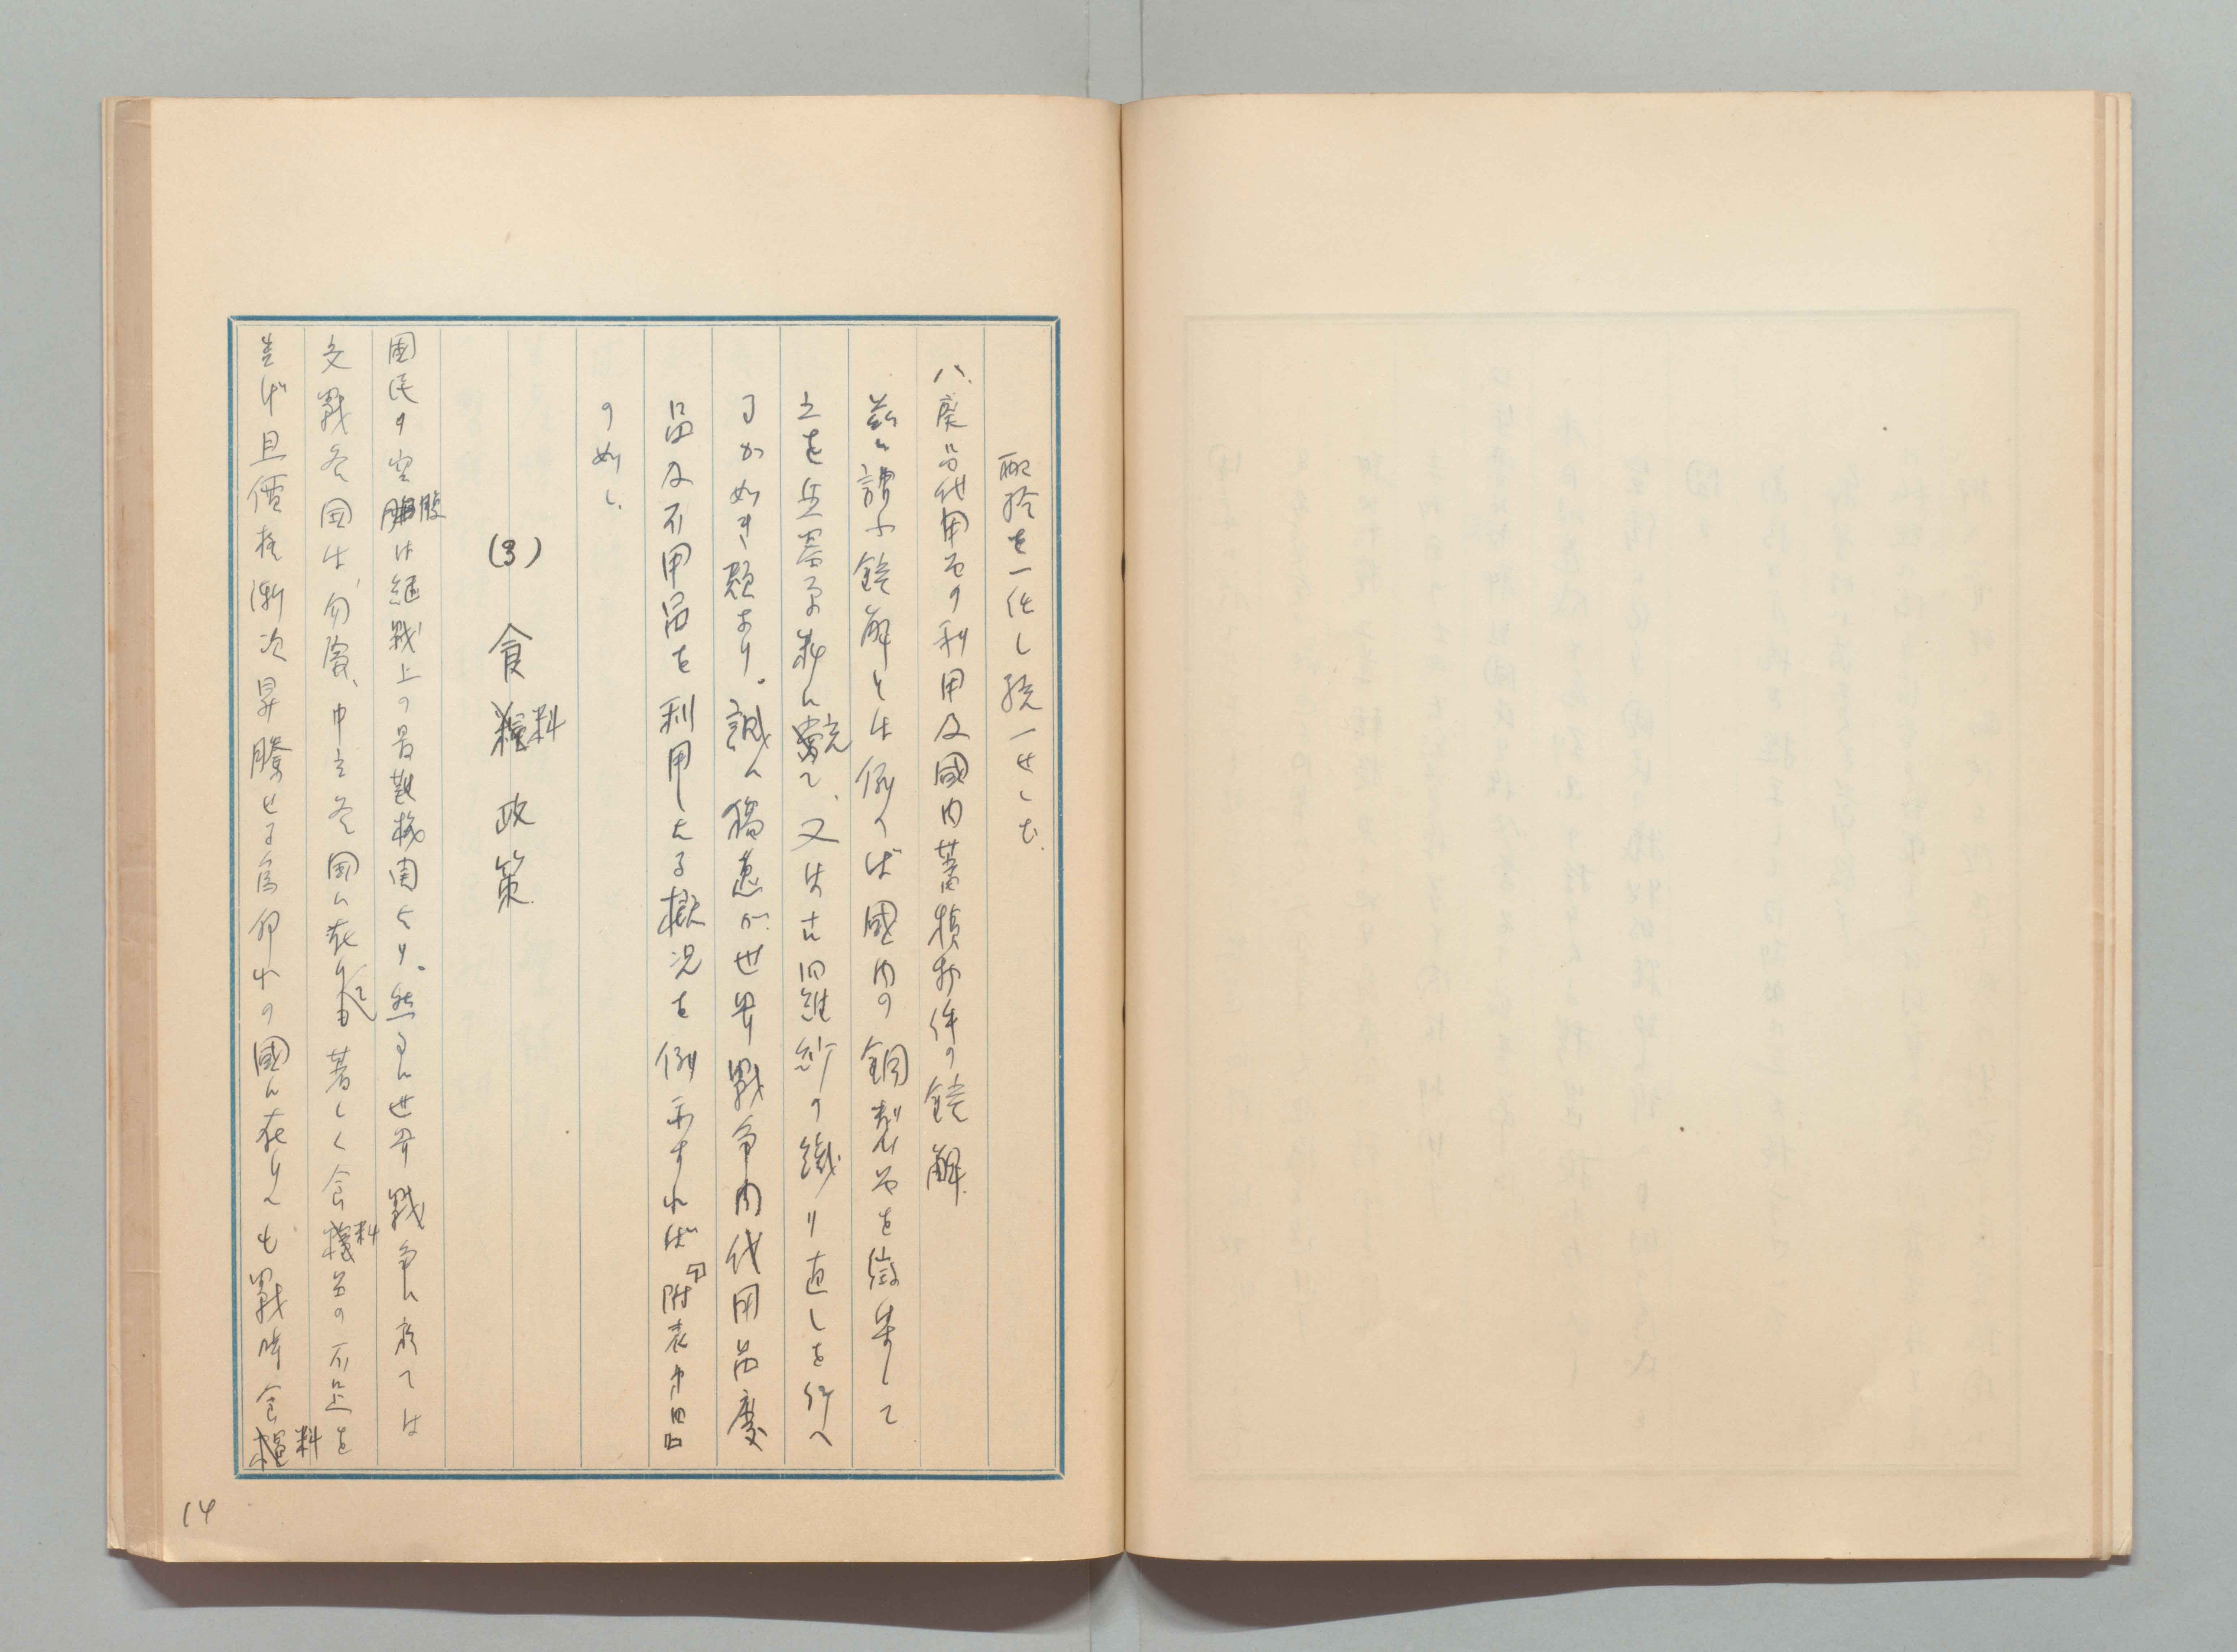 配給を一任し統一せしむ
八、廃品代用品の利用及國内蓄積物件の鎔解
茲に謂ふ鎔解とは例へば國内の銅製品を徴集して
之を兵器弾薬に充て、又は古旧羅紗の織り直しを行へ
るが如き類なり。誠に独逸が世界戦争間代用品廃
品及不用品を利用したる概況を例示すれば附表第四
の如し、
(3) 食料政策
國民の空腹は継戦上の最難機関たり。然るに世界戦争に於ては
交戦各国は勿論、中立各国に在りても著しく食料品の不足を
告げ且價格漸次昇騰せる為何れの國に在りても戦時食料
14